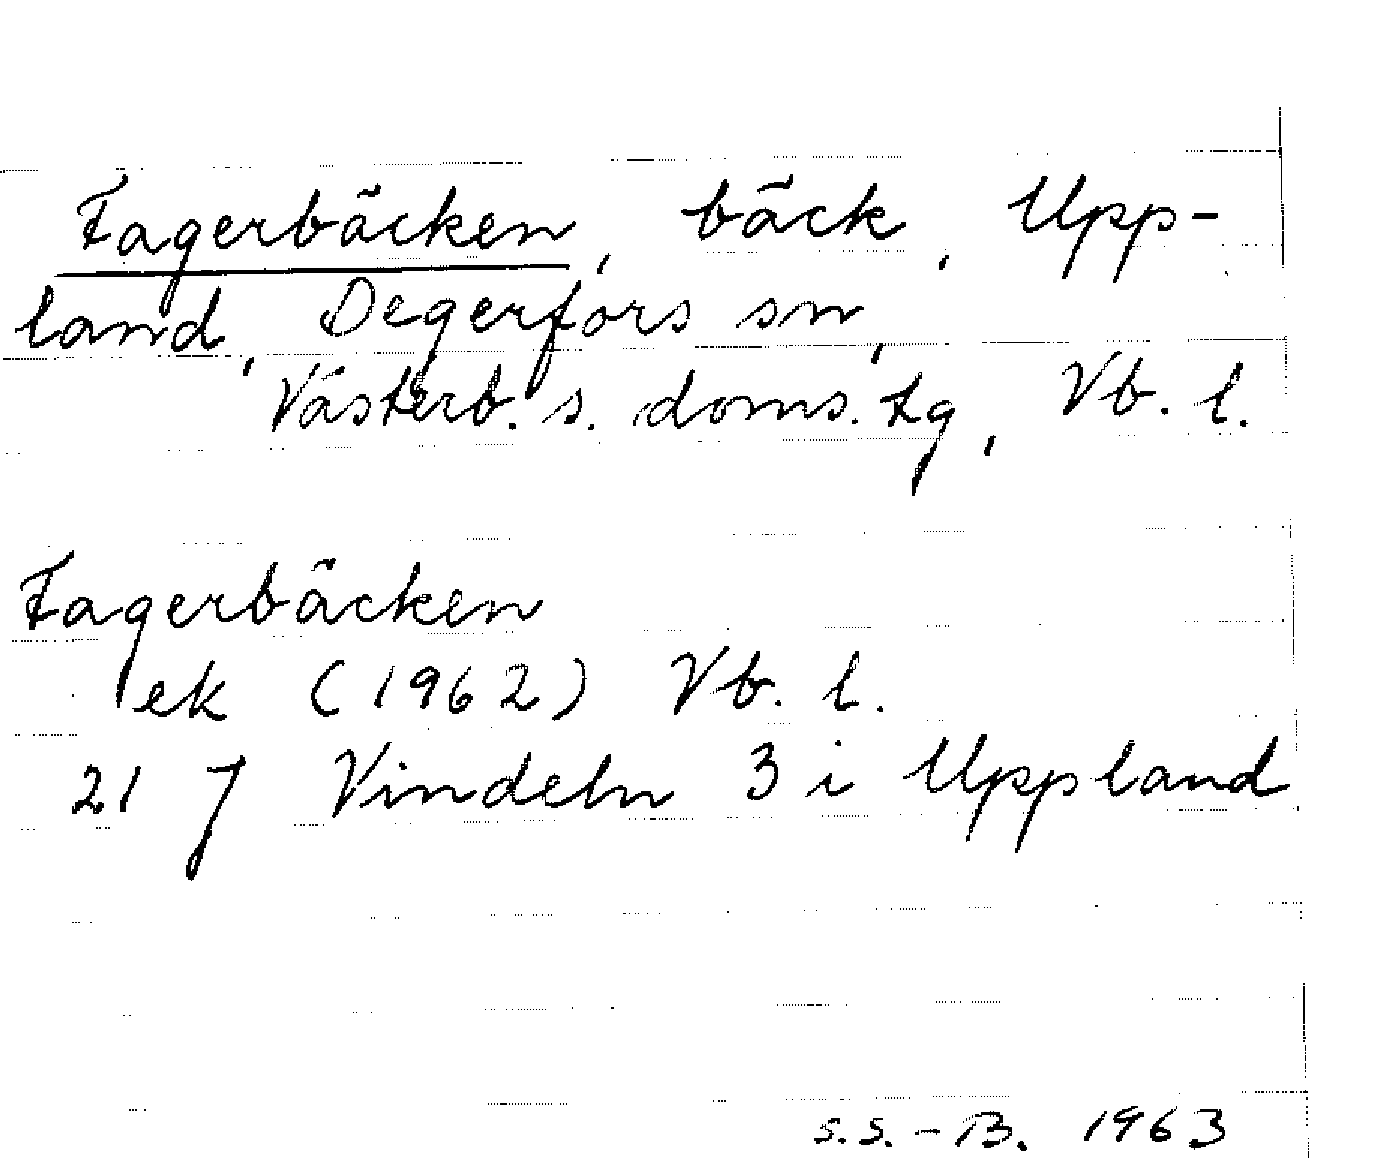 Fagerbäcken, bäck, Upp-
land, Degerfors sn,
Västerb. s. doms. tg, Vb. l.
Fagerbäcken
ek (1962) Vb. l.
21 J Vindeln 3 i Uppland
S.S.-B. 1963